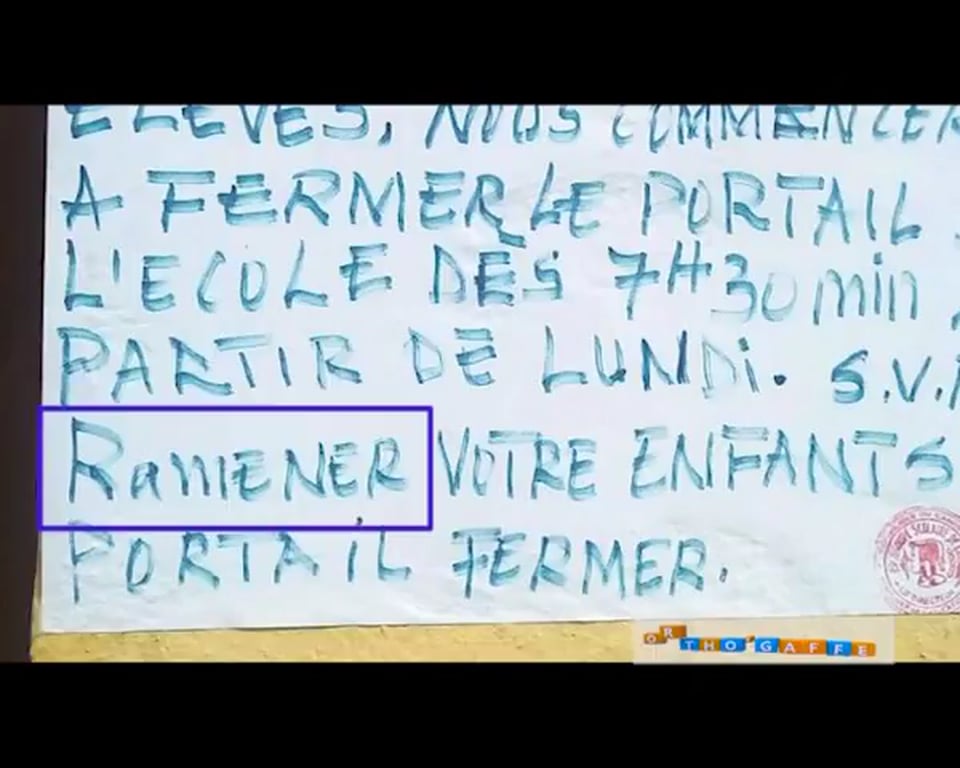 ELEVES, NOUS COMMENCER
A FERMER LE PORTAIL
L'ECOLE DÈS 7H30min
PARTIR DE LUNDi. S.V.P
RamENER VOTRE ENFANTS
PORTAIL FERMER.
ORTHO'GAFFE